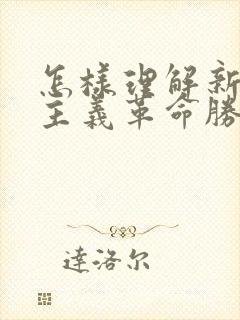 怎樣理解新
主義革命勝
達洛尔